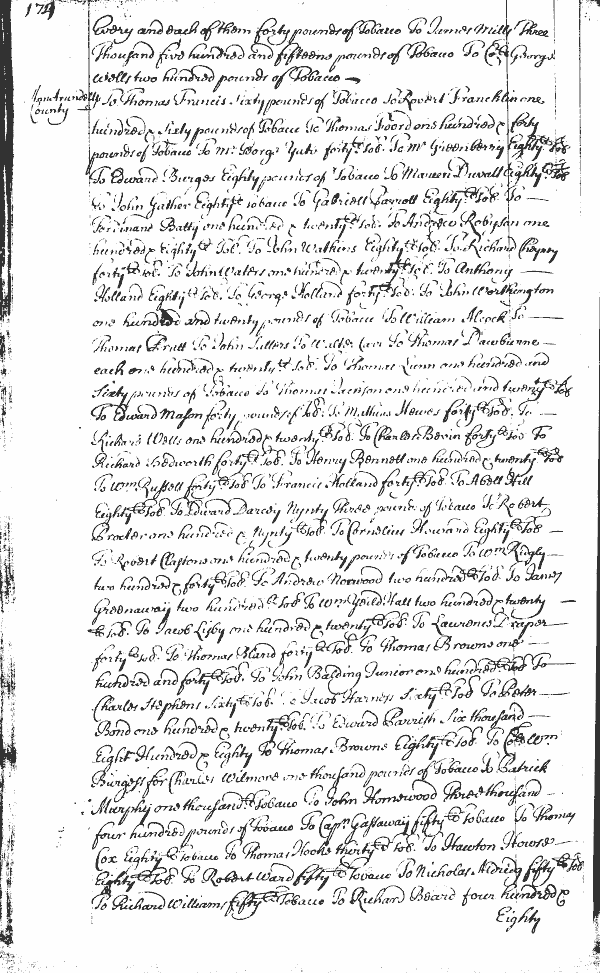 174
Every and each of them forty pounds of Tobacco To James Mills Three
Thousand five hundred and fifteene pounds of Tobacco To Coll George
Wells two hundred pounds of Tobacco
Annarundell County
To Thomas Francis Sixty pounds of Tobacco To Robert Francklin one
hundred & Sixty pounds of Tobacco To Thomas Foord one hundred & forty
pounds of Tobacco To Mr George Yate forty lb Tob. To Mr Greenberry Eighty lb Tob
To Edward Burges Eighty pounds of Tobacco To Mareen Duvall Eighty lb Tob
To John Gather Eighty lb tobacco To Gabriell Parrott Eighty lb Tob. To
Ferdinand Batty one hundred & twenty lb Tob. To Andrew Robysan one
hundred & Eighty lb Tob. To John Watkins Eighty lb Tob. To Richard Cheyny
forty lb Tob. To John Waters one hundred & twenty lb Tob. To Anthony
Holland Eighty lb Tob. To George Holland forty lb Tob. To John Worthington
one hundred and twenty pounds of Tobacco To William Alcock To
Thomas Pratt To John To Walter Carr To Thomas Dawburne
each one hundred & twenty lb Tob. To Thomas Lunn one hundred and
Sixty pounds of Tobacco To Thomas Jackson one hundred and twenty lb Tob
To Edward Mason forty pounds of Tob. To Mathias Hewes forty lb Tob. To
Richard Wells one hundred & twenty lb Tob. To Charles Bevin forty lb Tob To
Richard Bedworth forty lb Tob. To Henry Bennett one hundred & twenty lb Tob
To Wm Russell forty lb Tob To Francis Holland forty lb Tob. To Abell Hill
Eighty lb Tob To Edward Darcey Nynty Three pounds of Tobacco To Robert
Procter one hundred & Nynty lb Tob. To Cornelius Howard Eighty lb Tob
To Robert Claptone one hundred & twenty pounds of Tobacco To Wm Ridgly
two hundred & forty lb Tob. To Andrew Norwood two hundred lb Tob. To James
Greenaway two hundred lb Tob To Wm Yeildhall two hundred & twenty
lb Tob. To Jacob Lisby one hundred & twenty lb Tob. To Lawrence Draper
forty lb Tob. To Thomas Bland forty lb Tob. To Thomas Browne one
hundred and forty lb Tob. To John Balding Junior one hundred lb Tob To
Charles Stephens Sixty lb Tob. To Jacob Harness Sixty lb Tob To Peter
Bond one hundred & twenty lb Tob. To Edward Parrish Six thousand
Eight Hundred & Eighty To Thomas Browne Eighty lb Tob. To Coll Wm
Burgess for Charles Wilmore one thousand pounds of Tobacco To Patrick
Murphy one thousand lb tobacco To John Homewood Three thousand
four hundred pounds of tobacco To Capn Gassaway fifty lb tobacco To Thomas
Cox Eighty lb tobacco To Thomas Hooke thirty lb Tob. To Hawton House
Eighty lb Tob. To Robert Ward fifty lb Tobacco To Nicholas Aldridg fifty lb Tob
To Richard Williams fifty lb Tobacco To Richard Beard four hundred &
Eighty